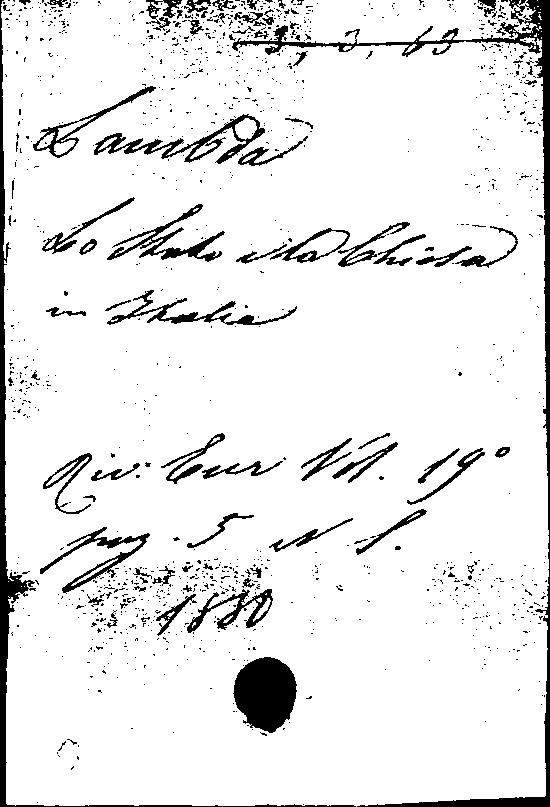 3, 3, 63
Lambda
Lo Stato e la Chiesa
in Italia
Riv: Eur Vol. 19º
pag. 5 N S.
1880